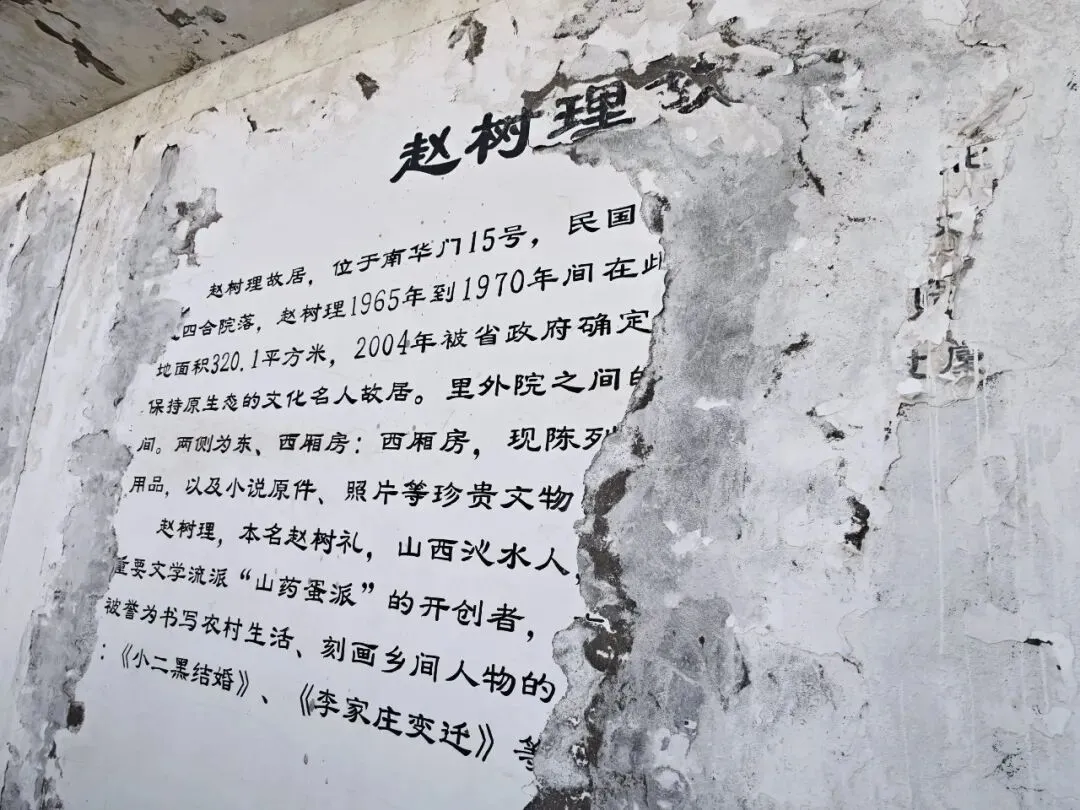 赵树理故
赵树理故居，位于南华门15号，民国
四合院落，赵树理1965年到1970年间在此
地面积320.1平方米，2004年被省政府确定
保持原生态的文化名人故居。里外院之间的
间。两侧为东、西厢房：西厢房，现陈列
用品，以及小说原件、照片等珍贵文物
赵树理，本名赵树礼，山西沁水人，
重要文学流派“山药蛋派”的开创者，
被誉为书写农村生活、刻画乡间人物的
：《小二黑结婚》、《李家庄变迁》等